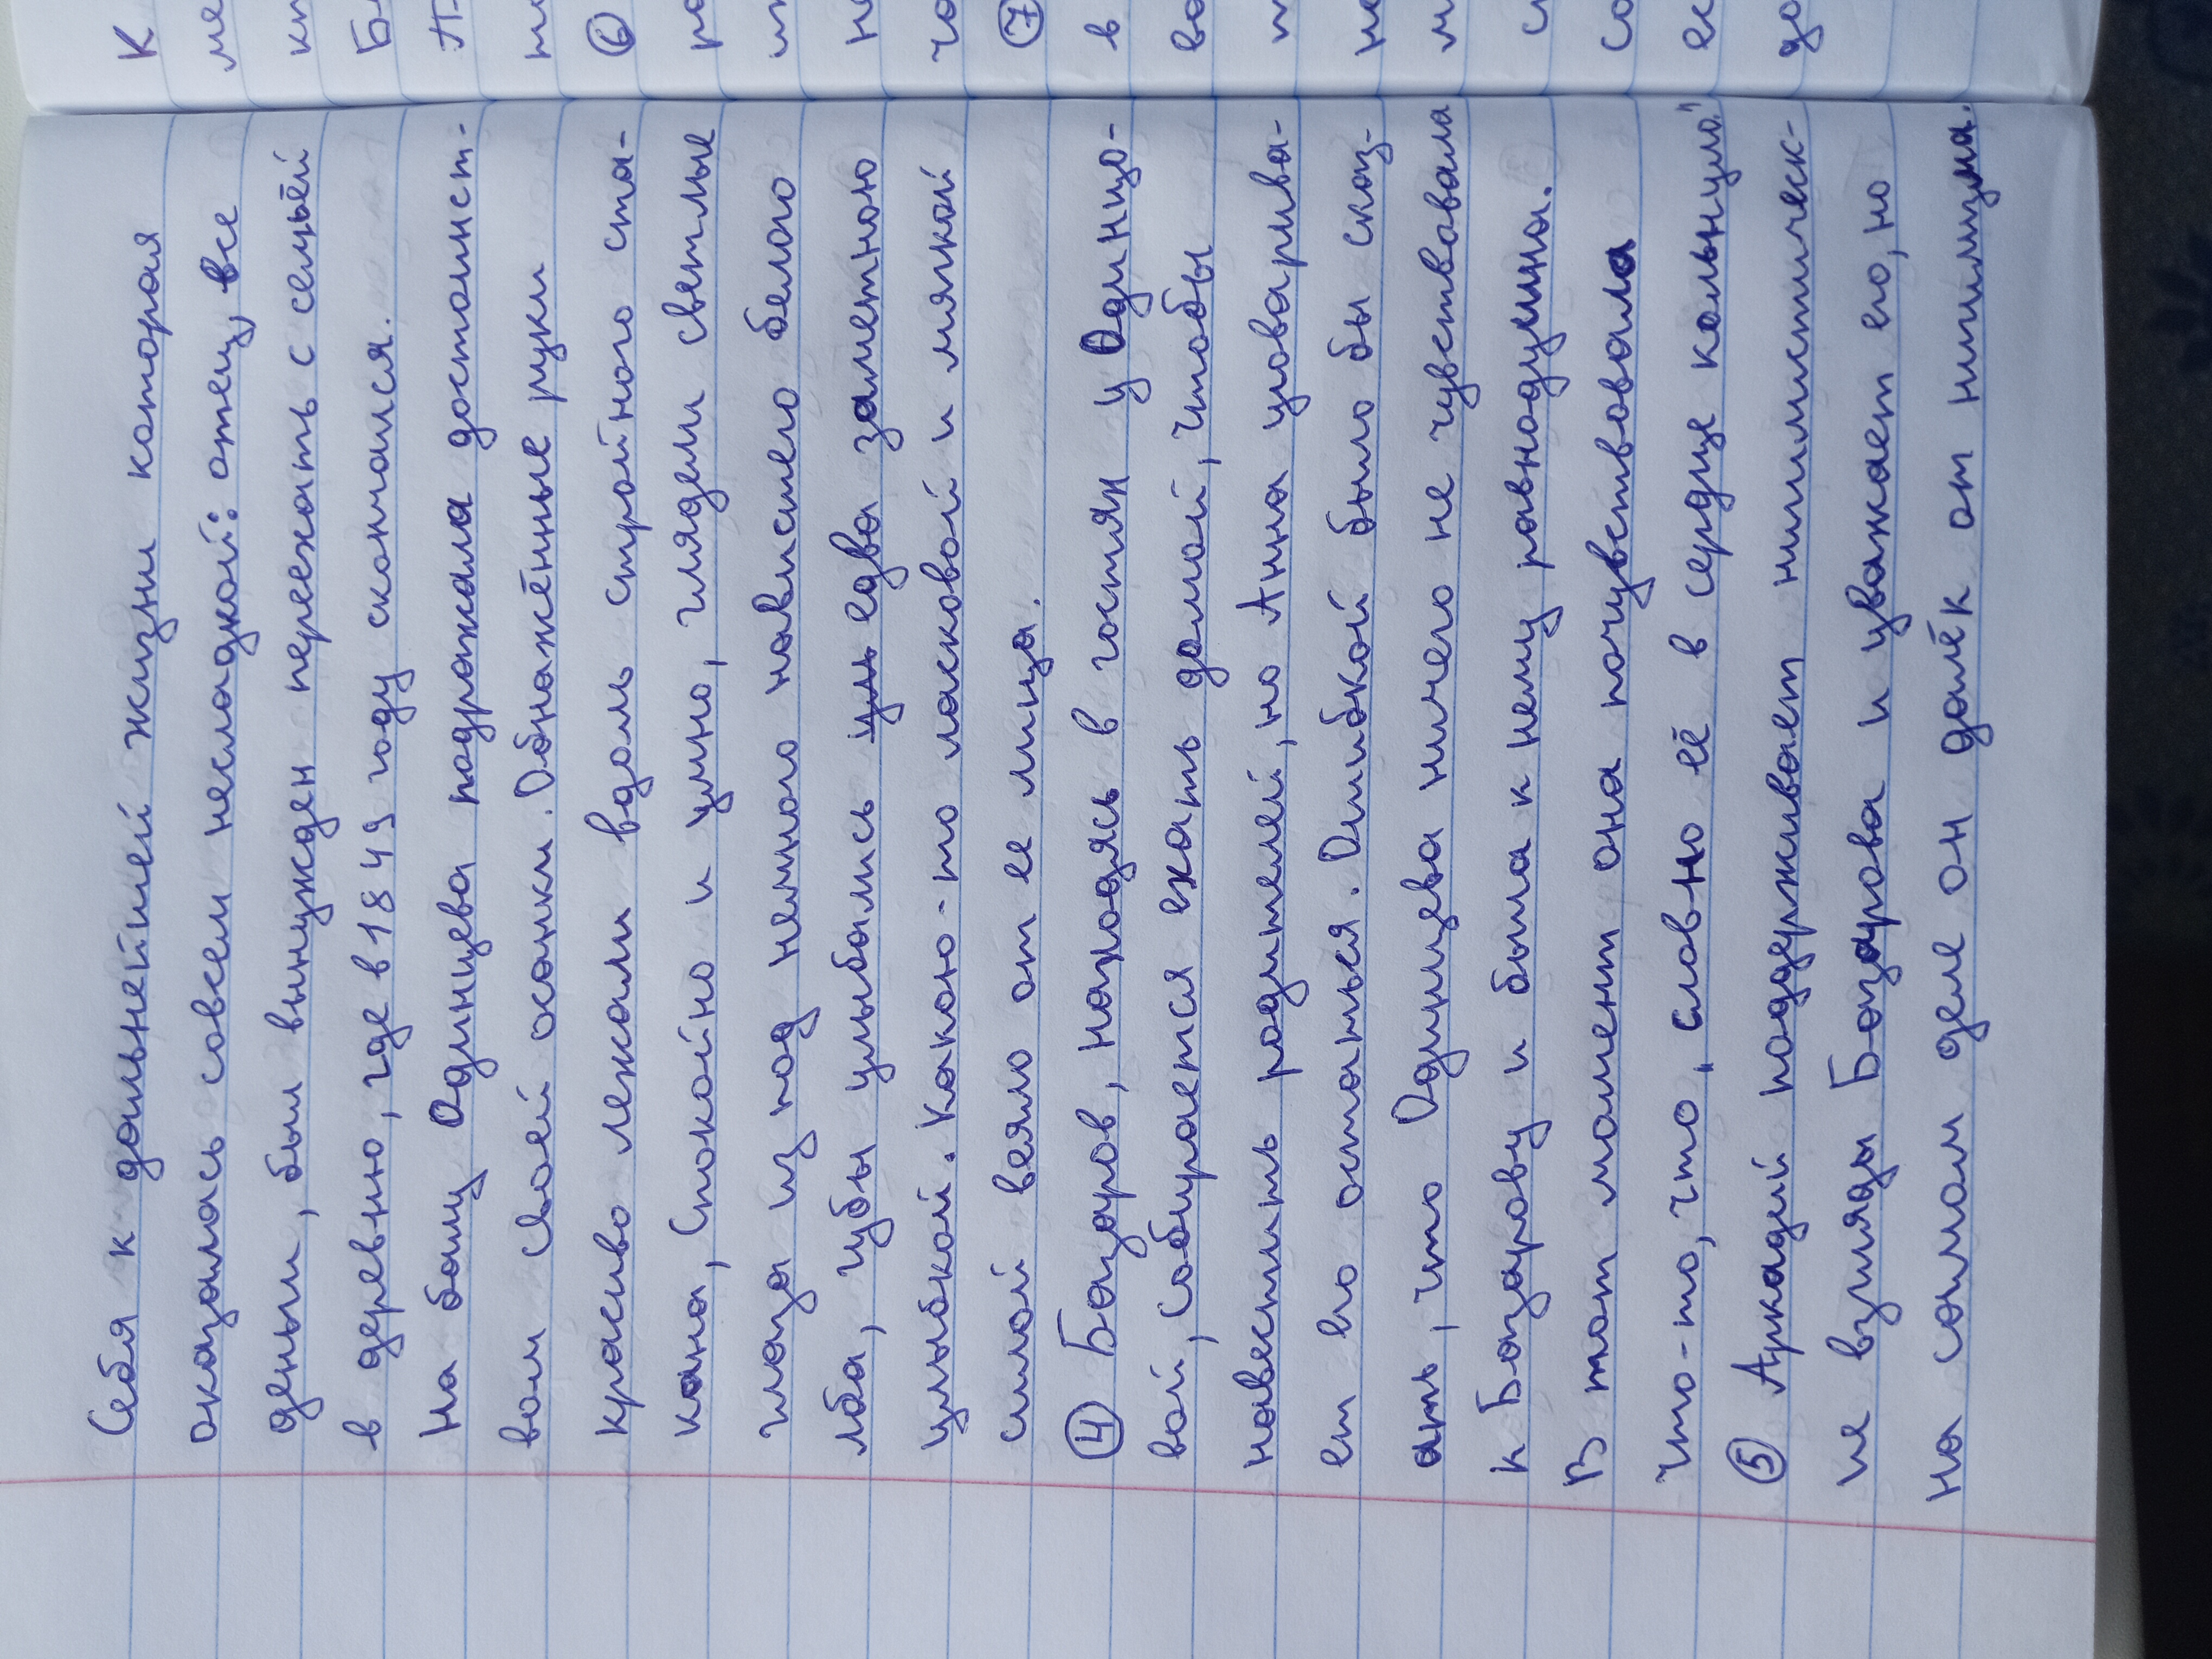 себя к дальнейшей жизни которая
оказалась совсем несладкой: отец, все
деньги, был вынужден переехать с семьёй
в деревню, где в 1849 году скончался.
На балу Одинцева подрожала достоинст-
вом своей осанки. Обнажённые руки
красиво лежали вдоль стройного ста-
на, спокойно и умно, глядели светлые
глаза из под немного нависшего белого
лба, губы улыбались едва заметною
улыбкой. Какою-то ласковой и мягкой
силой веяло от ее лица.
④ Базаров, находясь в гостях у Одинцо-
вой, собирается ехать домой, чтобы
навестить родителей, но Анна уговарива-
ет его остаться. Ошибкой было бы сказ-
ать, что Одинцева ничего не чувствовала
к Базарову и была к нему равнодушна.
В тот момент она почувствовала
что-то, что, словно её в сердце кольнуло!
⑤ Аркадий поддерживает нигилистическ-
ие взгляды Базарова и уважает его, но
на самом деле он далёк от нигилизма.
К
ме
кп
Б
А
⑥
н
⑦
в
во
т
м
с
со
ес
до